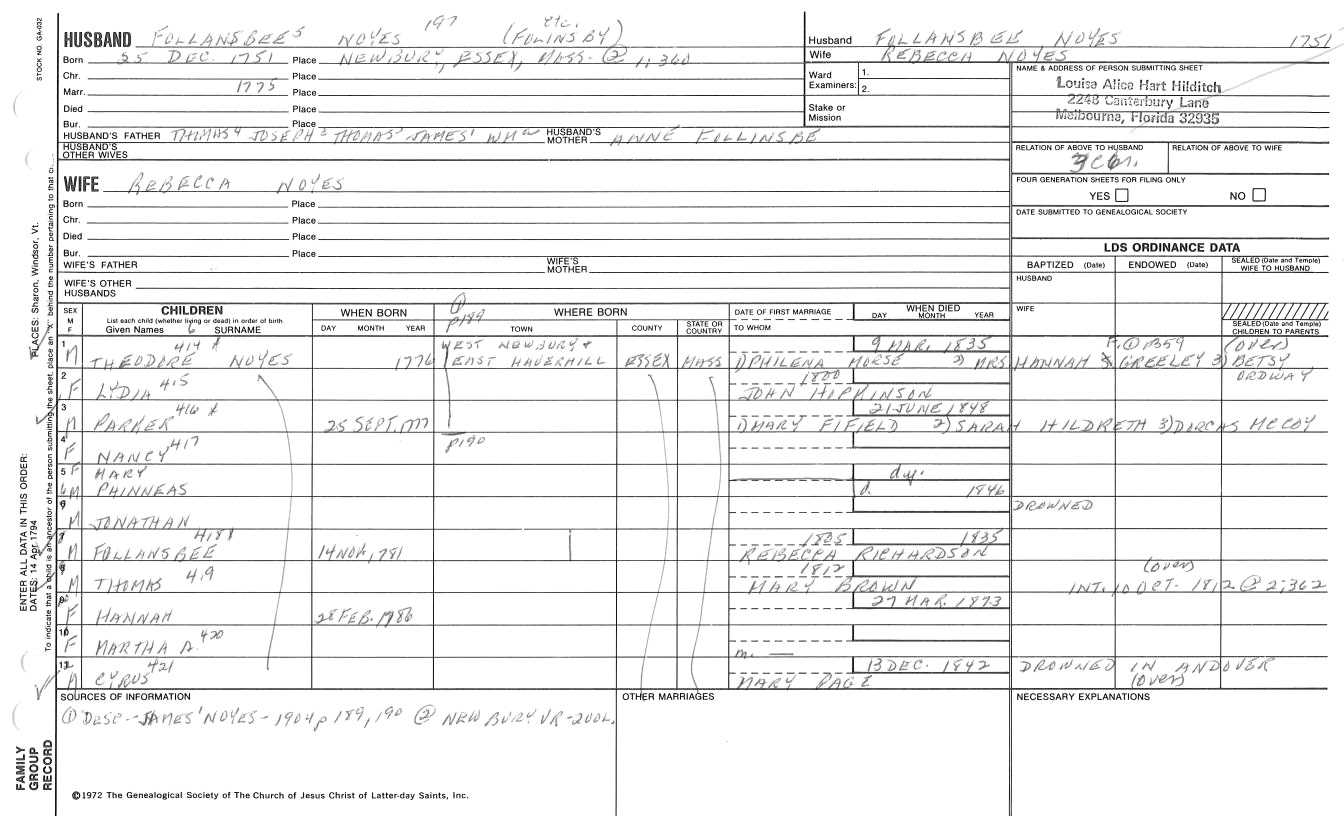 STOCK NO. GA-032
197 etc.
HUSBAND FOLLANSBEE⁵ NOYES (FOLINSBY)
Born 25 DEC. 1751 Place NEWBURY, ESSEX, MASS. ② 1:360
Chr. Place
Marr. 1775 Place
Died Place
Bur. Place
HUSBAND'S FATHER THOMAS⁴ JOSEPH³ THOMAS² JAMES¹ WMᵃ HUSBAND'S MOTHER ANNE FOLLINSBE
HUSBAND'S OTHER WIVES
WIFE REBECCA NOYES
Born Place
Chr. Place
Died Place
Bur. Place
WIFE'S FATHER WIFE'S MOTHER
WIFE'S OTHER HUSBANDS
Husband FOLLANSBEE NOYES 1751
Wife REBECCA NOYES
Ward Examiners: 1. 2.
Stake or Mission
NAME & ADDRESS OF PERSON SUBMITTING SHEET
Louisa Alice Hart Hilditch
2248 Canterbury Lane
Melbourne, Florida 32935
RELATION OF ABOVE TO HUSBAND RELATION OF ABOVE TO WIFE
FOUR GENERATION SHEETS FOR FILING ONLY
YES NO
DATE SUBMITTED TO GENEALOGICAL SOCIETY
LDS ORDINANCE DATA
BAPTIZED (Date) ENDOWED (Date) SEALED (Date and Temple) WIFE TO HUSBAND
HUSBAND
WIFE
SEALED (Date and Temple) CHILDREN TO PARENTS
SEX M F
CHILDREN
List each child (whether living or dead) in order of birth
Given Names 6 SURNAME
WHEN BORN DAY MONTH YEAR
① p189
WHERE BORN TOWN COUNTY STATE OR COUNTRY
DATE OF FIRST MARRIAGE TO WHOM
WHEN DIED DAY MONTH YEAR
1 414 * WEST NEWBURY & 9 MAR. 1835 ① P359 (over)
M THEODORE NOYES 1776 EAST HAVERHILL ESSEX MASS 1) PHILENA MORSE 2) MRS HANNAH GREELEY 3) BETSY ORDWAY
2 415 1800
F LYDIA JOHN HOPKINSON
3 416 * 21 JUNE 1848
M PARKER 25 SEPT. 1777 1) MARY FIFIELD 2) SARAH HILDRETH 3) DORCAS MCCOY
4 417 p190
F NANCY
5 F MARY d.y.
6 M PHINNEAS d. 1846
M JONATHAN DROWNED
418* 1805 1835
M FOLLANSBEE 14 NOV. 1781 REBECCA RICHARDSON
419 1812 (over)
M THOMAS MARY BROWN INT. 10 OCT. 1812 @ 2:362
27 MAR. 1873
F HANNAH 28 FEB. 1786
10
F MARTHA A. 420 m. —
421 13 DEC. 1842 DROWNED IN ANDOVER
M CYRUS MARY PAGE (over)
SOURCES OF INFORMATION OTHER MARRIAGES NECESSARY EXPLANATIONS
① DESC.--JAMES¹ NOYES - 1904 p 189, 190 ② NEWBURY VR-2VOL.
©1972 The Genealogical Society of The Church of Jesus Christ of Latter-day Saints, Inc.
ENTER ALL DATA IN THIS ORDER:
DATES: 14 Apr. 1794 PLACES: Sharon, Windsor, Vt.
To indicate that a child is an ancestor of the person submitting the sheet, place an "X" behind the number pertaining to that
FAMILY GROUP RECORD